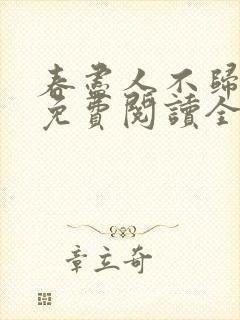 春盡人不歸
免費閱讀全
章立奇